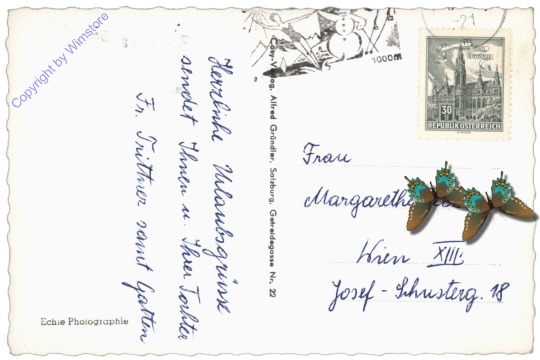 Copyright by Wimstore
1000m
-2.1
30
REPUBLIK ÖSTERREICH
Herzliche Urlaubsgrüsse
sendet Ihnen u. Ihrer Tochter
Fr. Trittner samt Gatten
Cosy-Verlag, Alfred Gründler, Salzburg, Getreidegasse Nr. 22
Frau
Margarethe
Wien XIII.
Josef-Schusterg. 18
Echte Photographie